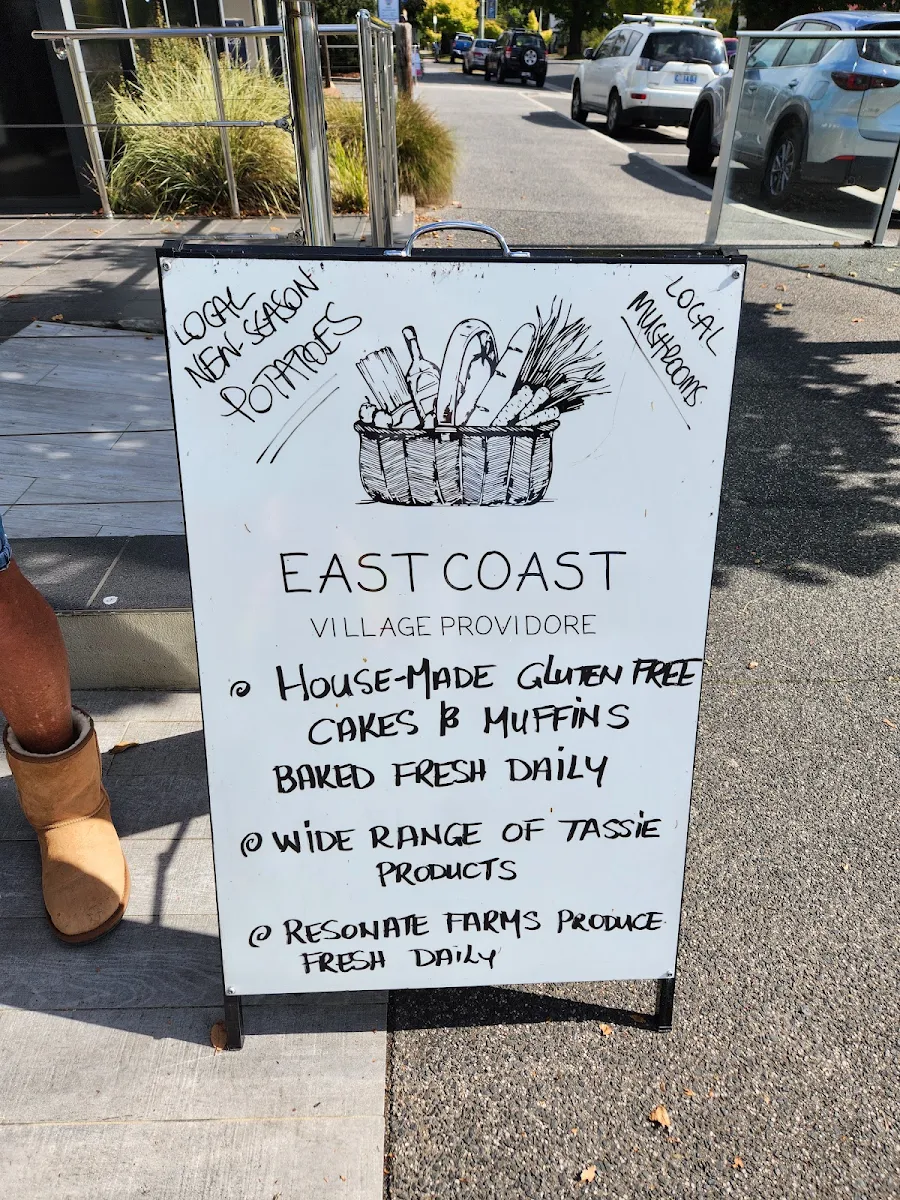 LOCAL
NEW-SEASON
POTATOES
LOCAL
MUSHROOMS
EAST COAST
VILLAGE PROVIDORE
HOUSE-MADE GLUTEN FREE
CAKES & MUFFINS
BAKED FRESH DAILY
WIDE RANGE OF TASSIE
PRODUCTS
RESONATE FARMS PRODUCE
FRESH DAILY